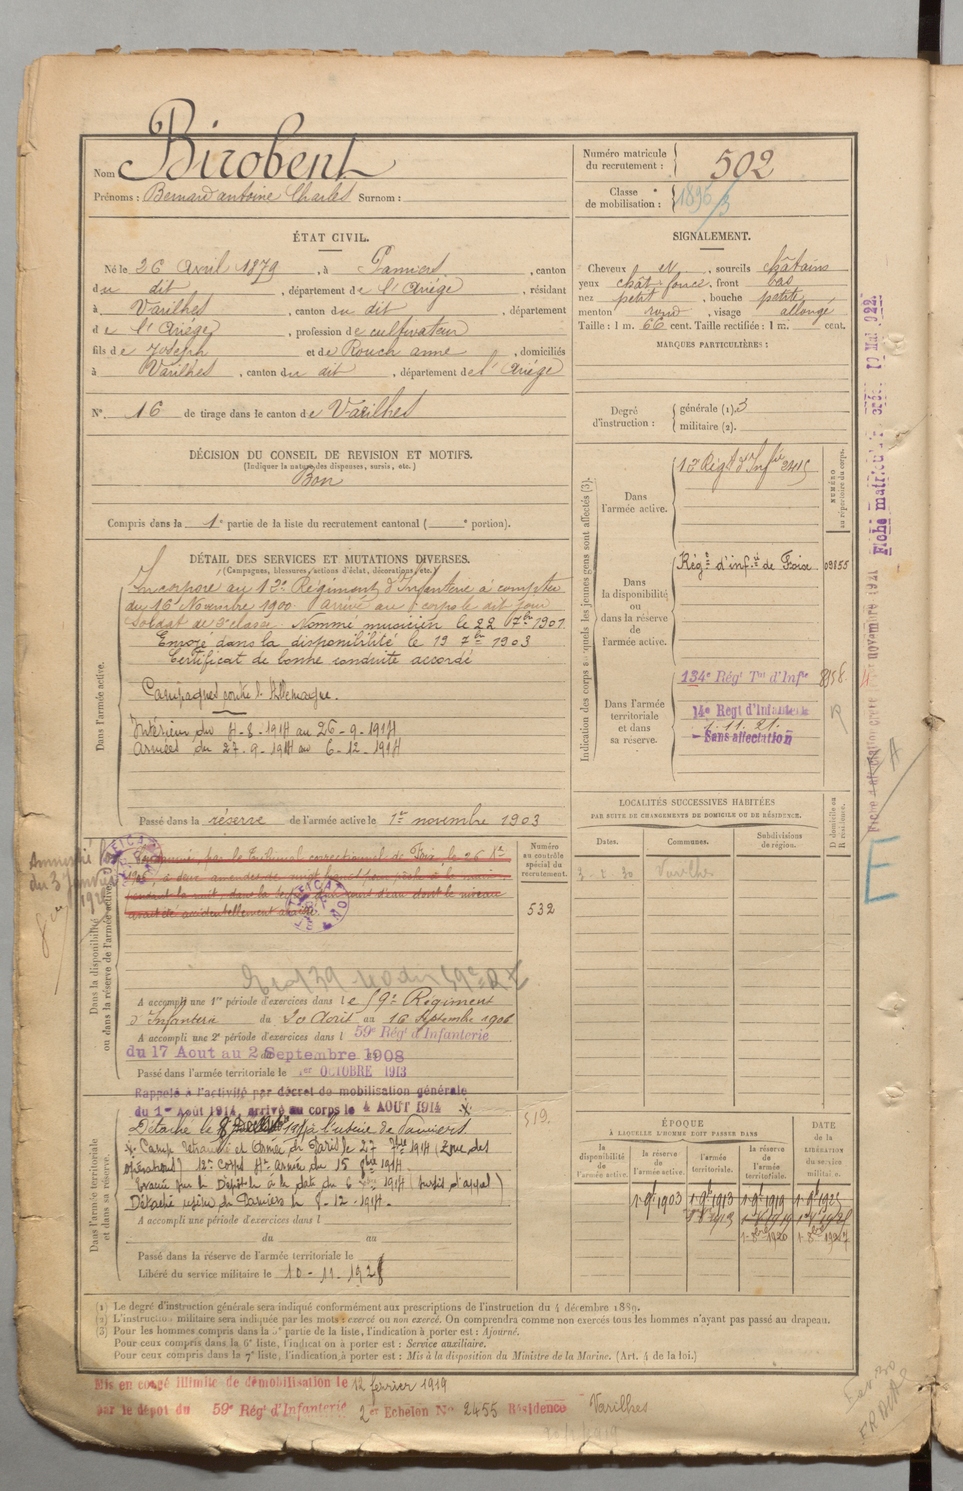 Nom Birobent
Prénoms : Bernard antoine Charles Surnom :
Numéro matricule du recrutement : 502
Classe de mobilisation : 1896/3
ÉTAT CIVIL.
Né le 26 Avril 1879, à Pamiers, canton
du dit, département de l'Ariége, résidant
à Varilhes, canton du dit, département
de l'Ariége, profession de cultivateur
fils de Joseph et de Rouch anne, domiciliés
à Varilhes, canton du dit, département de l'Ariége
N° 16 de tirage dans le canton de Varilhes
SIGNALEMENT.
Cheveux et, sourcils châtains
yeux chât. foncé, front bas
nez petit, bouche petite
menton rond, visage allongé
Taille : 1 m. 66 cent. Taille rectifiée : 1 m. cent.
MARQUES PARTICULIÈRES :
Degré d'instruction : générale (1). 3
militaire (2).
DÉCISION DU CONSEIL DE REVISION ET MOTIFS.
(Indiquer la nature des dispenses, sursis, etc.)
Bon
Compris dans la 1e partie de la liste du recrutement cantonal ( e portion).
DÉTAIL DES SERVICES ET MUTATIONS DIVERSES.
(Campagnes, blessures, actions d'éclat, décorations, etc.)
Dans l'armée active.
Incorporé au 12e Régiment d'Infanterie à compter
du 16 Novembre 1900 Arrivé au corps le dit jour
Soldat de 2e classe. Nommé musicien le 22 7bre 1901
Envoyé dans la disponibilité le 19 7bre 1903
Certificat de bonne conduite accordé
Campagnes contre l'Allemagne.
Intérieur du 4-8-1914 au 26-9-1914
Armées du 27-9-1914 au 6-12-1914
Passé dans la réserve de l'armée active le 1er novembre 1903
Indication des corps auxquels les jeunes gens sont affectés (3).
Dans l'armée active. 12e Régt d'Infrie 2415
NUMÉRO au répertoire du corps.
Dans la disponibilité ou dans la réserve de l'armée active. Régt d'infie de Foix 09855
Dans l'armée territoriale et dans sa réserve. 134e Régt Tal d'Infie 8958
14e Regt d'Infanterie
1.11.21.
Sans affectation
LOCALITÉS SUCCESSIVES HABITÉES
PAR SUITE DE CHANGEMENTS DE DOMICILE OU DE RÉSIDENCE.
Dates. Communes. Subdivisions de région. D domicile ou R résidence.
Varilhes
Dans la disponibilité ou dans la réserve de l'armée active.
Numéro au contrôle spécial du recrutement.
532
A accompli une 1re période d'exercices dans le 59e Régiment
d'Infanterie du 20 Août au 16 Septembre 1906
A accompli une 2e période d'exercices dans l 59e Régt d'Infanterie
du 17 Aout au 2 Septembre 1908
Passé dans l'armée territoriale le 1er OCTOBRE 1913
Dans l'armée territoriale et dans sa réserve.
Rappelé à l'activité par décret de mobilisation générale
du 1er Août 1914, arrivé au corps le 4 AOUT 1914
519.
à l'usine de Pamiers
Camp retranché et Armée de Paris le 27 7bre 1914 (Zone des
opérations) 12e corps 4e armée du 15 8bre 1914.
Détaché usine de Pamiers le 8-12-1914.
A accompli une période d'exercices dans l
du au
Passé dans la réserve de l'armée territoriale le
Libéré du service militaire le 10-11-1928
ÉPOQUE
À LAQUELLE L'HOMME DOIT PASSER DANS
la disponibilité de l'armée active. la réserve de l'armée active. l'armée territoriale. la réserve de l'armée territoriale. DATE de la LIBÉRATION du service militaire.
1-9bre 1903 1-9bre 1913 1-9bre 1919 1-9bre 1925
(1) Le degré d'instruction générale sera indiqué conformément aux prescriptions de l'instruction du 4 décembre 1889.
(2) L'instruction militaire sera indiquée par les mots : exercé ou non exercé. On comprendra comme non exercés tous les hommes n'ayant pas passé au drapeau.
(3) Pour les hommes compris dans la 5e partie de la liste, l'indication à porter est : Ajourné.
Pour ceux compris dans la 6e liste, l'indication à porter est : Service auxiliaire.
Pour ceux compris dans la 7e liste, l'indication à porter est : Mis à la disposition du Ministre de la Marine. (Art. 4 de la loi.)
Mis en congé illimité de démobilisation le 12 février 1919
par le dépot du 59e Régt d'Infanterie 2er Echelon N° 2455 Résidence Varilhes